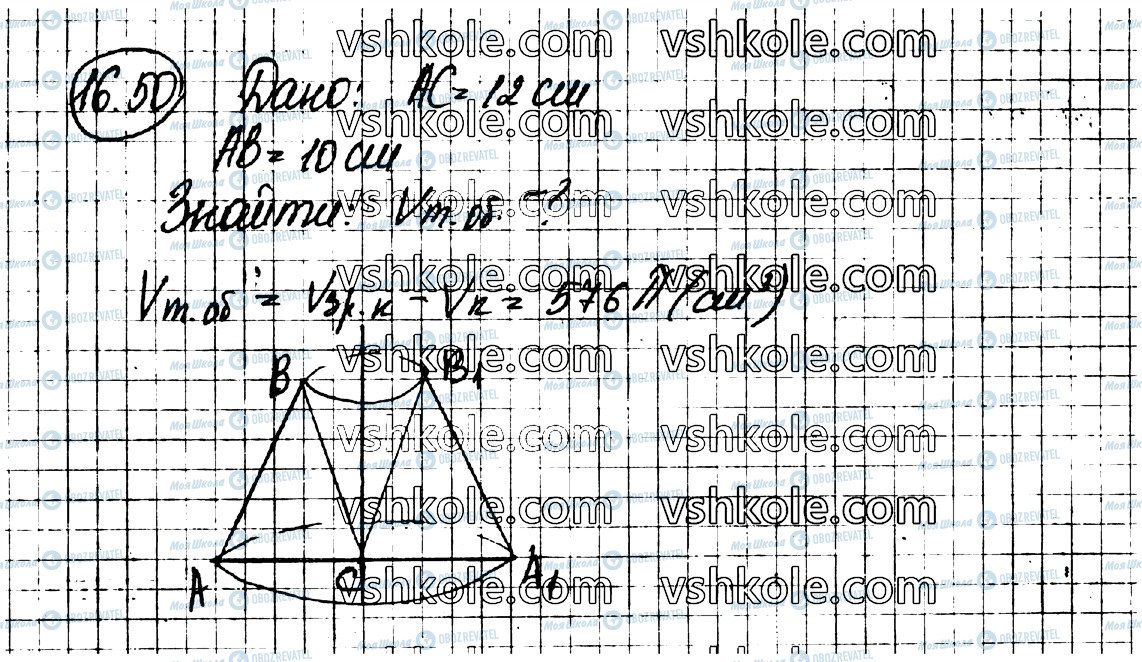 16.50 Дано: AC = 12 см
AB = 10 см
Знайти: Vт.об. - ?
Vт.об = Vзр.к - Vк = 576 π (см³)
B B₁
A C A₁
vshkole.com vshkole.com
vshkole.com vshkole.com
vshkole.com vshkole.com
vshkole.com vshkole.com
vshkole.com vshkole.com
vshkole.com vshkole.com
vshkole.com vshkole.com
vshkole.com vshkole.com
Моя Школа OBOZREVATEL